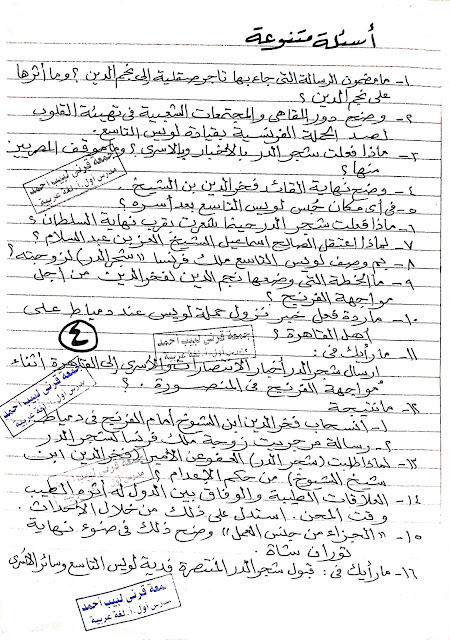 أسئلة متنوعة
١- ما مضمون الرسالة التى جاء بها تاجر صقلية إلى نجم الدين ؟ وما أثرها
على نجم الدين ؟
٢- وضح دور المقاهى والمجتمعات الشعبية فى تهيئة القلوب
لصد الحملة الفرنسية بقيادة لويس التاسع .
٣- ماذا فعلت شجر الدر بالأخبار وبالأسرى ؟ وما موقف المصريين
منها ؟
٤- وضح نهاية القائد فخر الدين بن الشيخ .
٥- فى أى مكان حُبس لويس التاسع بعد أسره ؟
٦- ماذا فعلت شجر الدر حينما شعرت بقرب نهاية السلطان ؟
٧- لماذا اعتقل الصالح إسماعيل الشيخ العز بن عبد السلام ؟
٨- بم وصف لويس التاسع ملك فرنسا «شجر الدر» لزوجته ؟
٩- ما الخطة التى وضعها نجم الدين لفخر الدين من أجل
مواجهة الفرنج ؟
١٠- ما ردة فعل خبر نزول حملة لويس عند دمياط على
أهل القاهرة ؟
٤
١١- ما رأيك فى :
إرسال شجر الدر أخبار الانتصارات والأسرى إلى القاهرة أثناء
مواجهة الفرنج فى المنصورة . ؟
١٢- ما نتيجة
١- انسحاب فخر الدين ابن الشيوخ أمام الفرنج فى دمياط
٢- رسالة مرجريت زوجة ملك فرنسا لشجر الدر
١٣- لماذا طلبت (شجر الدر) العفو عن الأمير (فخر الدين ابن
شيخ الشيوخ) من حكم الإعدام ؟
١٤- العلاقات الطيبة والوفاق بين الدول له أثره الطيب
وقت المحن . استدل على ذلك من خلال الأحداث .
١٥- «الجزاء من جنس العمل» وضح ذلك فى ضوء نهاية
توران شاة .
١٦- ما رأيك فى : قبول شجر الدر المنتصرة فدية لويس التاسع وسائر الأسرى
جمعة قرنى لبيب احمد
مدرس اول . أ . لغة عربية
جمعة قرنى لبيب احمد
مدرس اول . أ . لغة عربية
جمعة قرنى لبيب احمد
مدرس اول . أ . لغة عربية
جمعة قرنى لبيب احمد
جمعة قرنى لبيب احمد
مدرس اول . أ . لغة عربية